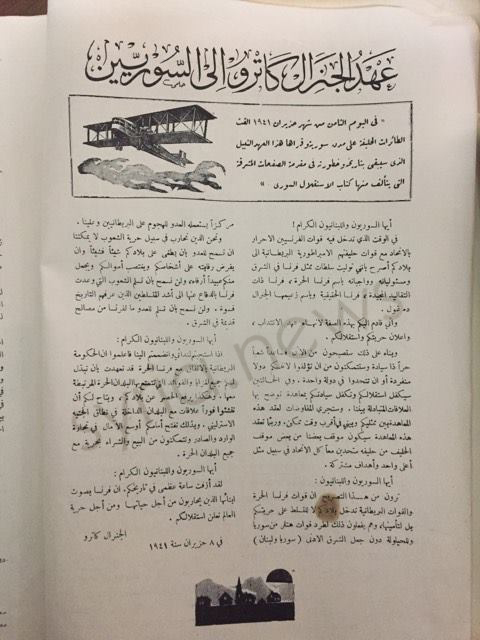 عهد الجنرال كاترو الى السوريين
« في اليوم الثامن من شهر حزيران ١٩٤١ القت
الطائرات الحليفة على مدن سورية وقراها هذا العهد النبيل
الذي سيبقى بتاريخه وخطورته في مقدمة الصفحات المشرقة
التي يتألف منها كتاب الاستقلال السوري »
أيها السوريون واللبنانيون الكرام !
في الوقت الذي تدخل فيه قوات الفرنسيين الاحرار
بالاتحاد مع قوات حليفتهم الامبراطورية البريطانية الى
بلادكم أصرح بأني توليت سلطات ممثل فرنسا في الشرق
ومسئولياته وواجباته باسم فرنسا الحرة ، فرنسا ذات
التقاليد المجيدة ، فرنسا الحقيقية وباسم زعيمها الجنرال
ده غول .
واني قادم اليكم بهذه الصفة لانهاء عهد الانتداب ،
واعلان حريتكم واستقلالكم .
وبناء على ذلك ستصبحون من الآن فصاعداً شعباً
حراً ذا سيادة وستتمكنون من ان تؤلفوا لأنفسكم دولا
منفردة أو ان تتحدوا في دولة واحدة . وفي الحالتين
سيكفل استقلالكم وتكفل سيادتكم بمعاهدة توضح بها
العلاقات المتبادلة بيننا . وستجري المفاوضات لعقد هذه
المعاهدة بين ممثليكم وبيني في أقرب وقت ممكن. وريثما تعقد
هذه المعاهدة سيكون موقف بعضنا من بعض موقف
الحليف من حليفه متحدين معاً كل الاتحاد في سبيل مثل
أعلى واحد وأهداف مشتركة .
أيها السوريون واللبنانيون الكرام :
ترون من هذا التصريح ان قوات فرنسا الحرة
والقوات البريطانية تدخل بلادكم لا للتسلط على حريتكم
بل لتأمينها، وهم يفعلون ذلك لطرد قوات هتلر من سوريا
وللحيلولة دون جعل الشرق الادنى ( سوريا ولبنان )
مركزاً يستعمله العدو للهجوم على البريطانيين وعلينا .
ونحن الذين نحارب في سبيل حرية الشعوب لا يمكننا
ان نسمح للعدو بان يطغى على بلادكم شيئاً فشيئاً وان
يفرض رقابته على أشخاصكم ويغتصب أموالكم ويجعل
منكم عبيداً أرقاء، ولن نسمح بان تسلم الشعوب التي وعدت
فرنسا بالدفاع عنها الى أشد المتسلطين الذين عرفهم التاريخ
قسوة . ولن نسمح بان تسلم للعدو ما لفرنسا من مصالح
قديمة في الشرق .
أيها السوريون واللبنانيون الكرام :
اذا استجبتم لندائي وانضممتم الينا فاعلموا ان الحكومة
البريطانية بالاتفاق مع فرنسا الحرة قد تعهدت بان تبذل
لكم جميع المزايا والفوائد التي تتمتع بها البلدان الحرة المرتبطة
معها . وهكذا يرفع الحصر عن بلادكم ، ويتاح لكم أن
تنشئوا فوراً علاقات مع البلدان الداخلة في نطاق الجنيه
الاسترليني ، وبذلك تفتح أمامكم أوسع الآمال في تجارة
الوارد والصادر وتتمكنون من البيع والشراء بحرية مع
جميع البلدان الحرة .
أيها السوريون واللبنانيون الكرام :
لقد أزفت ساعة عظمى في تاريخكم . ان فرنسا بصوت
ابنائها الذين يحاربون من أجل حياتها . ومن أجل حرية
العالم تعلن استقلالكم .
الجنرال كاترو
في ٨ حزيران سنة ١٩٤١
news